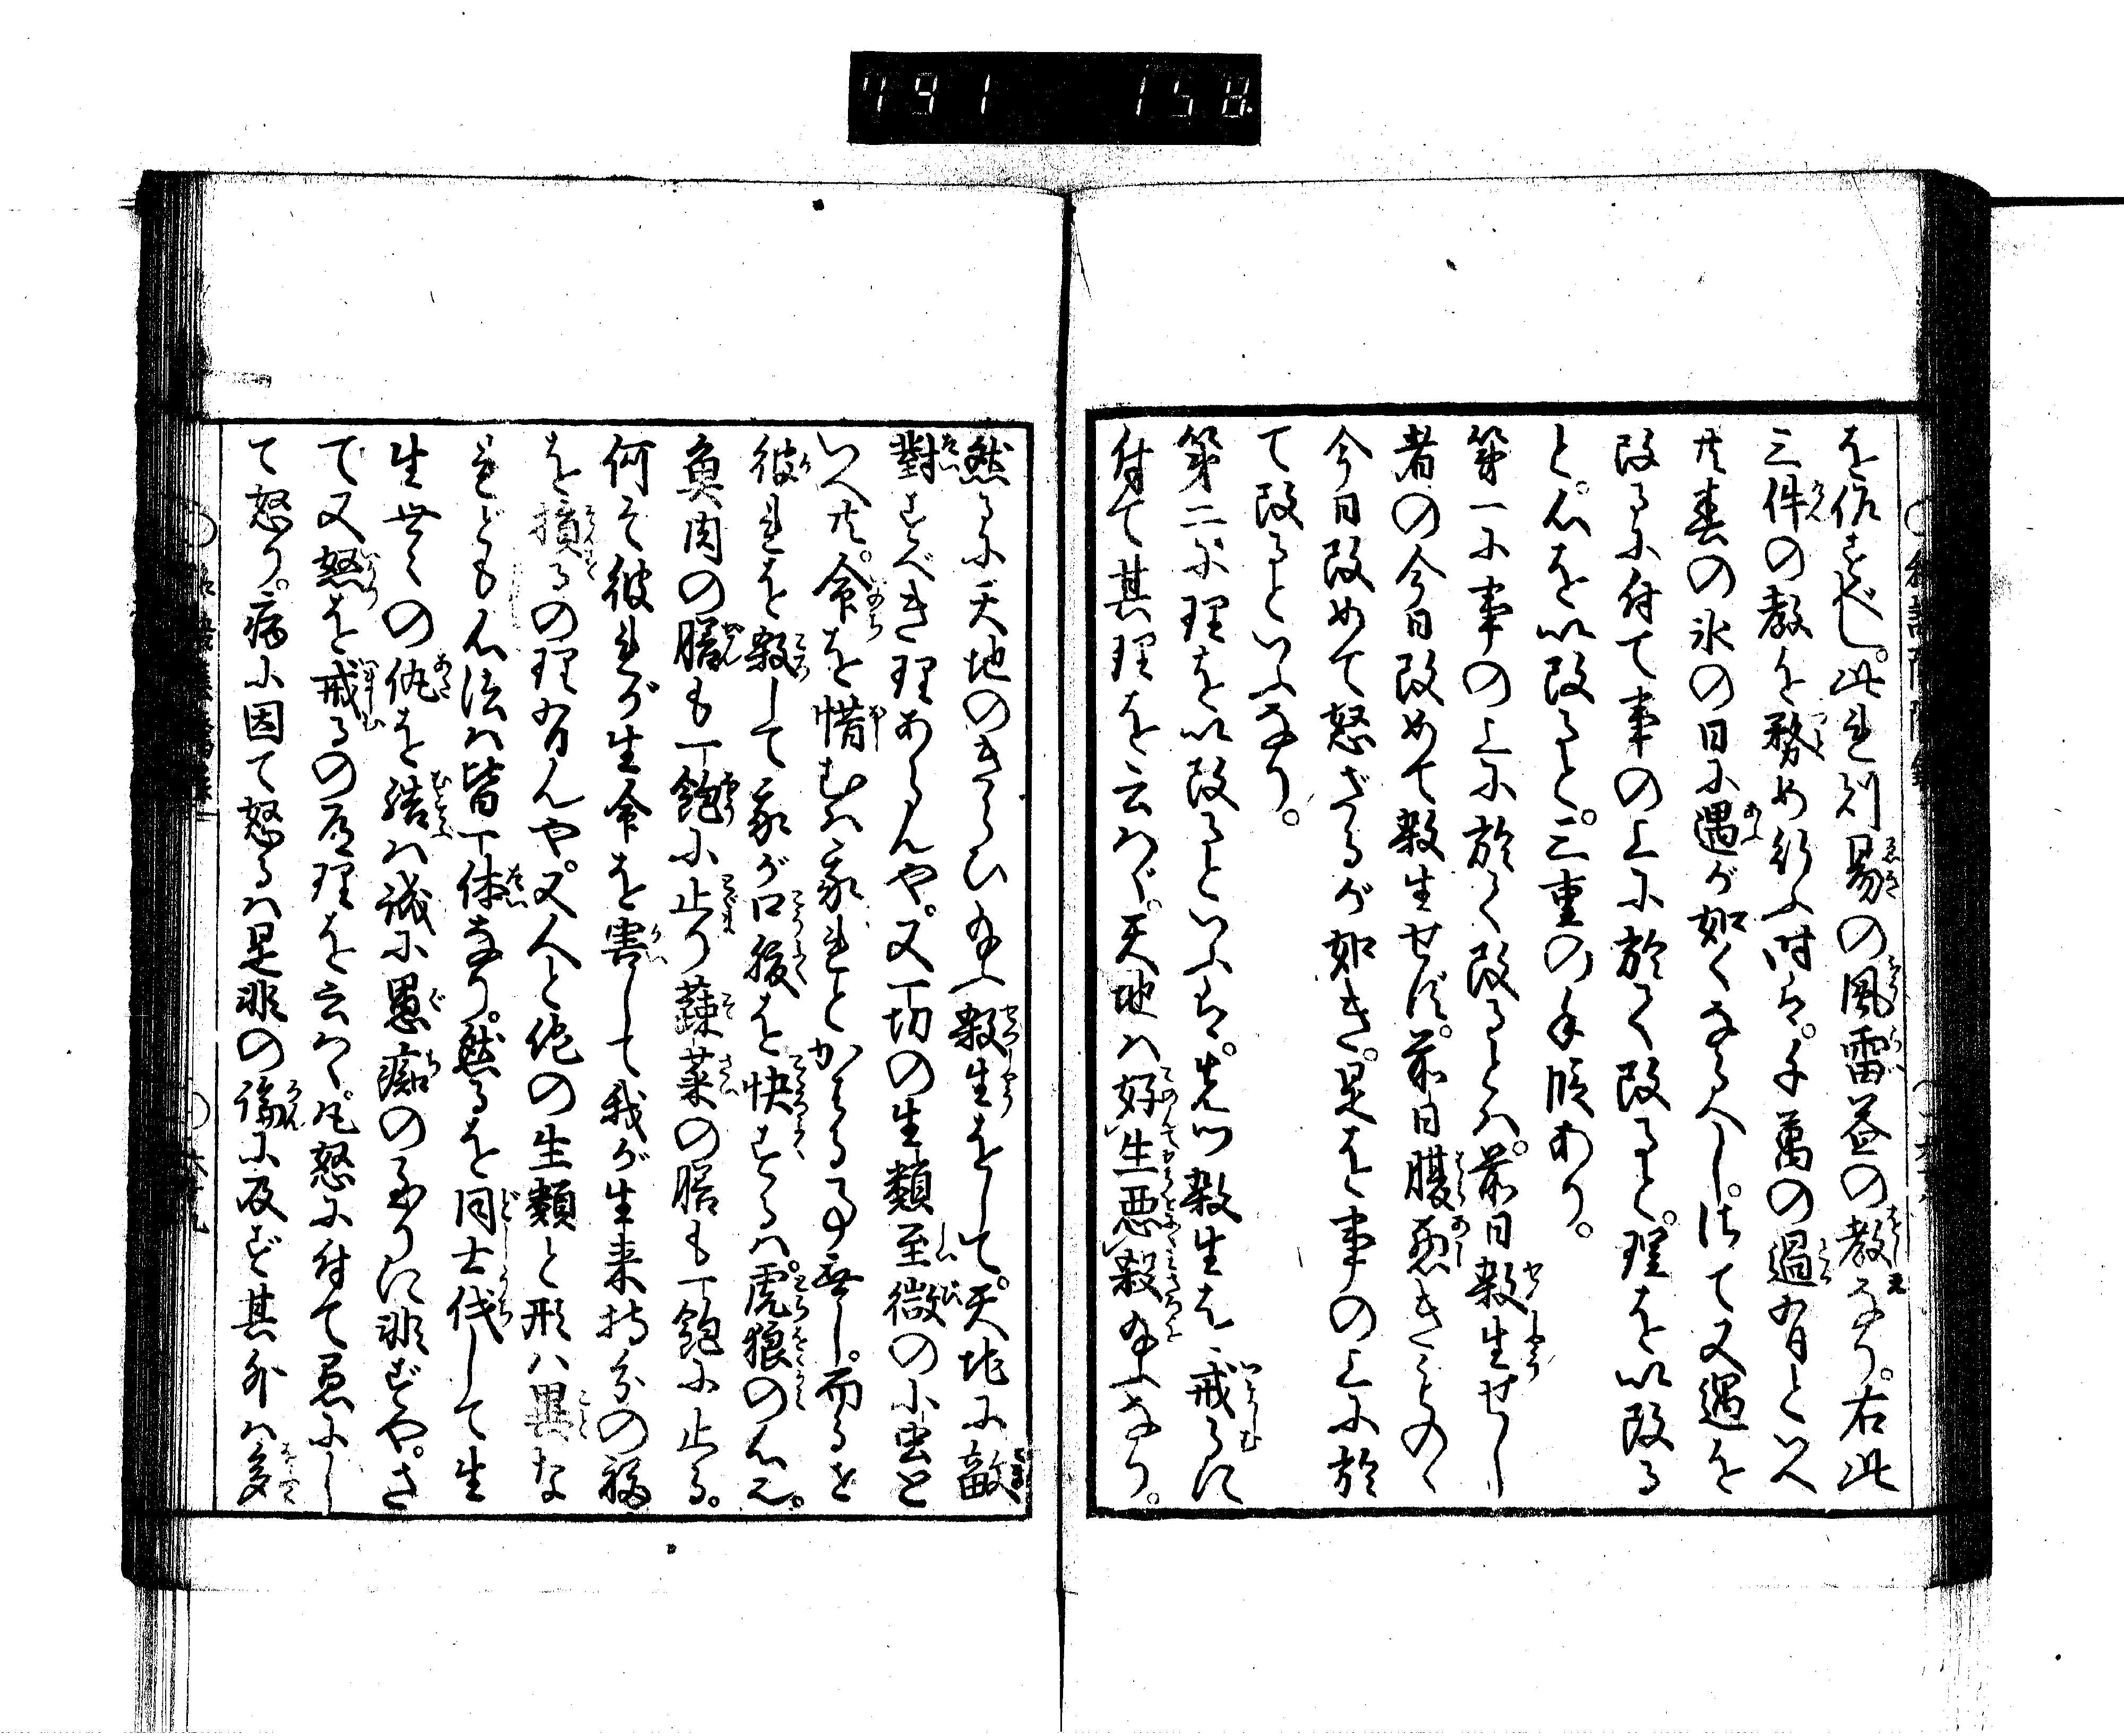 791 158
を依すべし。此れ則易の風雷益の教なり。右此
三件の教を務め行ふ時は。千萬の過有といへ
共春の氷の日に遇が如くなるべし。俤て又過を
改るに付て事の上に於て改ると。理を以改る
と。心を以改ると。三重の手段あり。
第一に事の上に於て改るとは。前日殺生せし
者の今日改めて殺生せず。前日腹悪きものゝ
今日改めて怒ざるが如き。是を事の上に於
て改るといふなり。
第二に理を以改るといふは。先づ殺生を戒るに
付て其理を云はゞ。天地は好生悪殺給ふなり。
然るに天地のきらひ給ふ殺生をして。天地に敵
對すべき理あらんや。又一切の生類至微の小虫と
いへ共。命を惜むは家れとかはる事無し。而るを
彼れを殺して家が口腹を快するは。虎狼の心也。
魚肉の膳も一飽に止り蔬菜の膳も一飽に止る。
何ぞ彼れが生命を害して我が生来持分の福
を損るの理有んや。又人と他の生類と形は異な
れども心法は皆一体なり。然るを同士伐して生
生世々の仇を結は誠に愚癡の至りに非ずや。さ
て又怒を戒るの道理を云はく。凡怒に付て愚にし
て怒り。病に因て怒るは是非の論に及ず其外は多